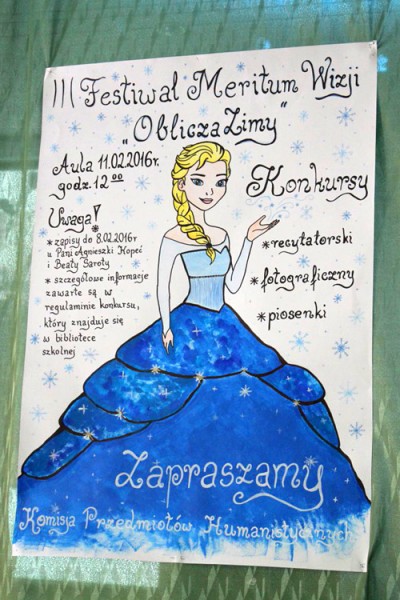 III Festiwal Meritum Wizji
"Oblicza Zimy"
Aula 11.02.2016r.
godz. 12⁰⁰
Konkursy
*recytatorski
*fotograficzny
*piosenki
Uwaga!
*zapisy do 8.02.2016r
u Pani Agnieszki Kopeć
i Beaty Garoty
*szczegółowe informacje
zawarte są w
regulaminie konkursu,
który znajduje się
w bibliotece
szkolnej
Zapraszamy
Komisja Przedmiotów Humanistycznych